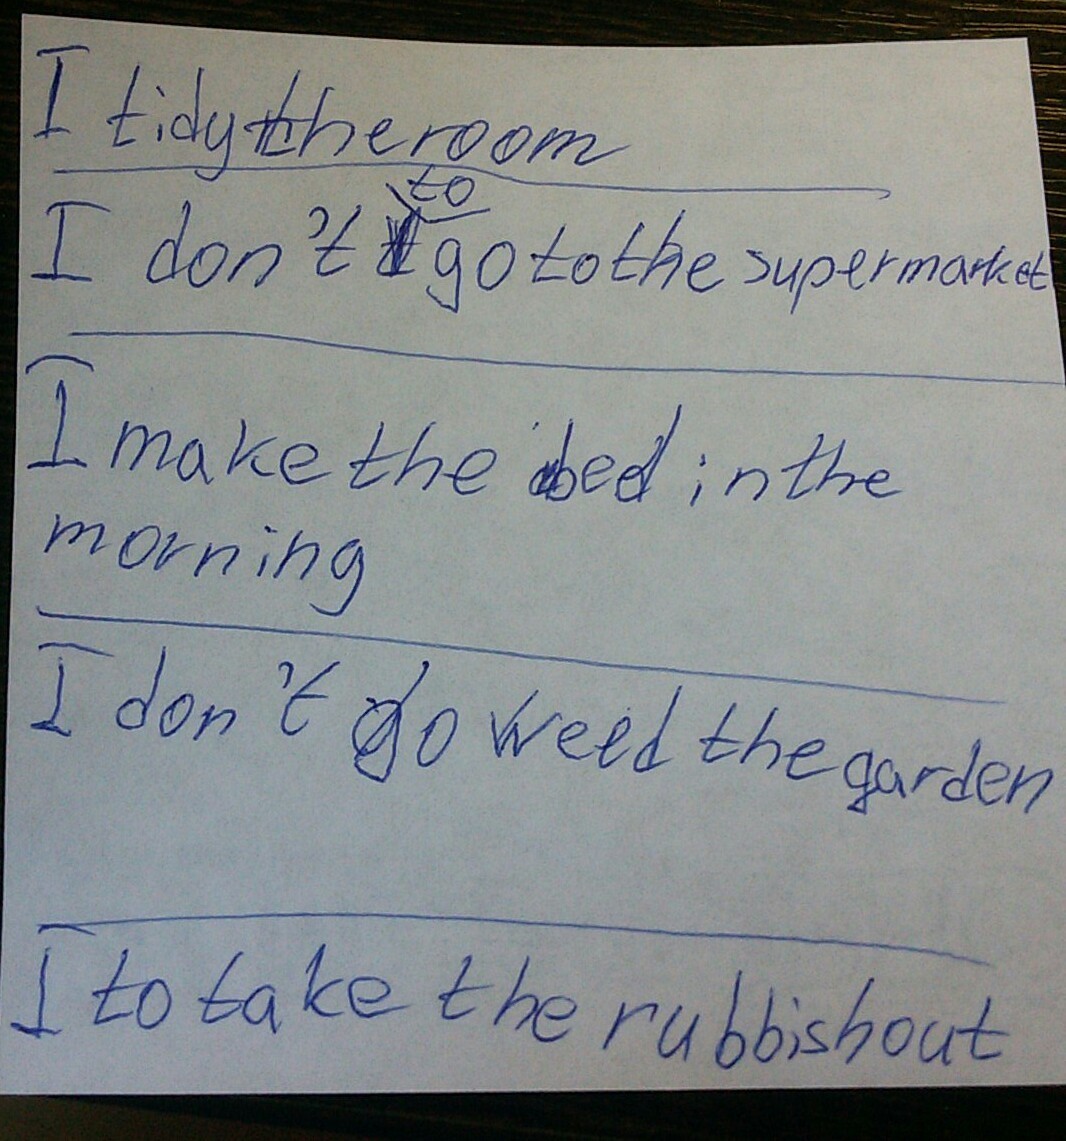 I tidy the room
to
I don't go to the supermarket
I make the bed in the
morning
I don't go weed the garden
I to take the rubbish out